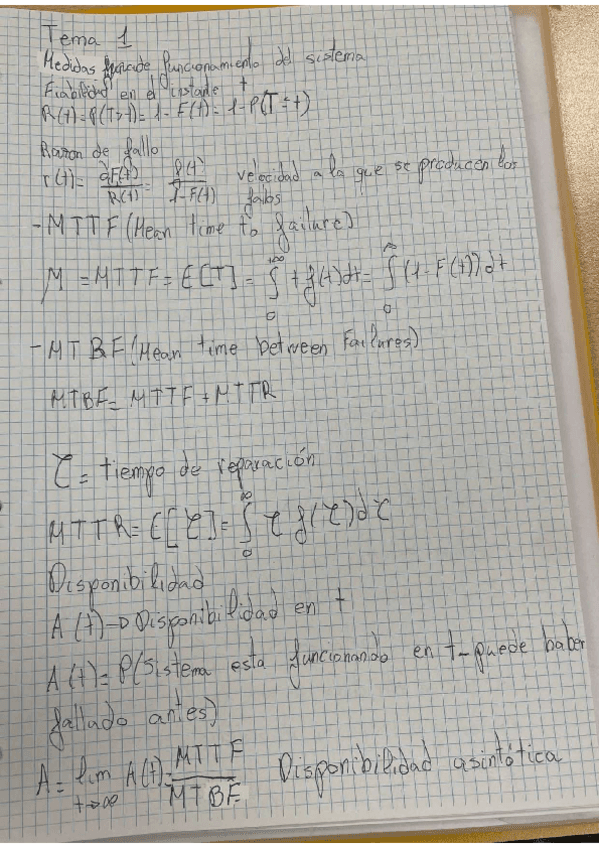 Tema 1
Medidas de funcionamiento del sistema
Fiabilidad en el instante t
R(t)=P(T>t)=1-F(t)=1-P(T≤t)
Razon de fallo
r(t)= dF(t)/R(t) = f(t)/1-F(t) velocidad a la que se producen los
fallos
-MTTF (Mean time to failure)
M=MTTF=E[T]=∫₀^+∞ t f(t)dt=∫₀^∞ (1-F(t))dt
-MTBF (Mean time between Failures)
MTBF= MTTF+MTTR
τ= tiempo de reparación
MTTR=E[τ]=∫₀^∞ τ f(τ)dτ
Disponibilidad
A(t)→Disponibilidad en t
A(t)=P(Sistema esta funcionando en t-puede haber
fallado antes)
A= lim t→∞ A(t)= MTTF/MTBF Disponibilidad asintótica